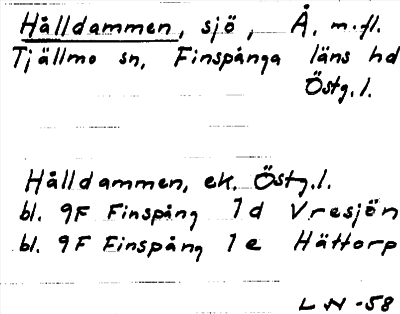 Hålldammen, sjö, Å. m.fl.
Tjällmo sn, Finspånga läns hd
Östg.l.
Hålldammen, ek. Östg.l.
bl. 9F Finspång 1d Vresjön
bl. 9F Finspång 1e Hättorp
LN-58